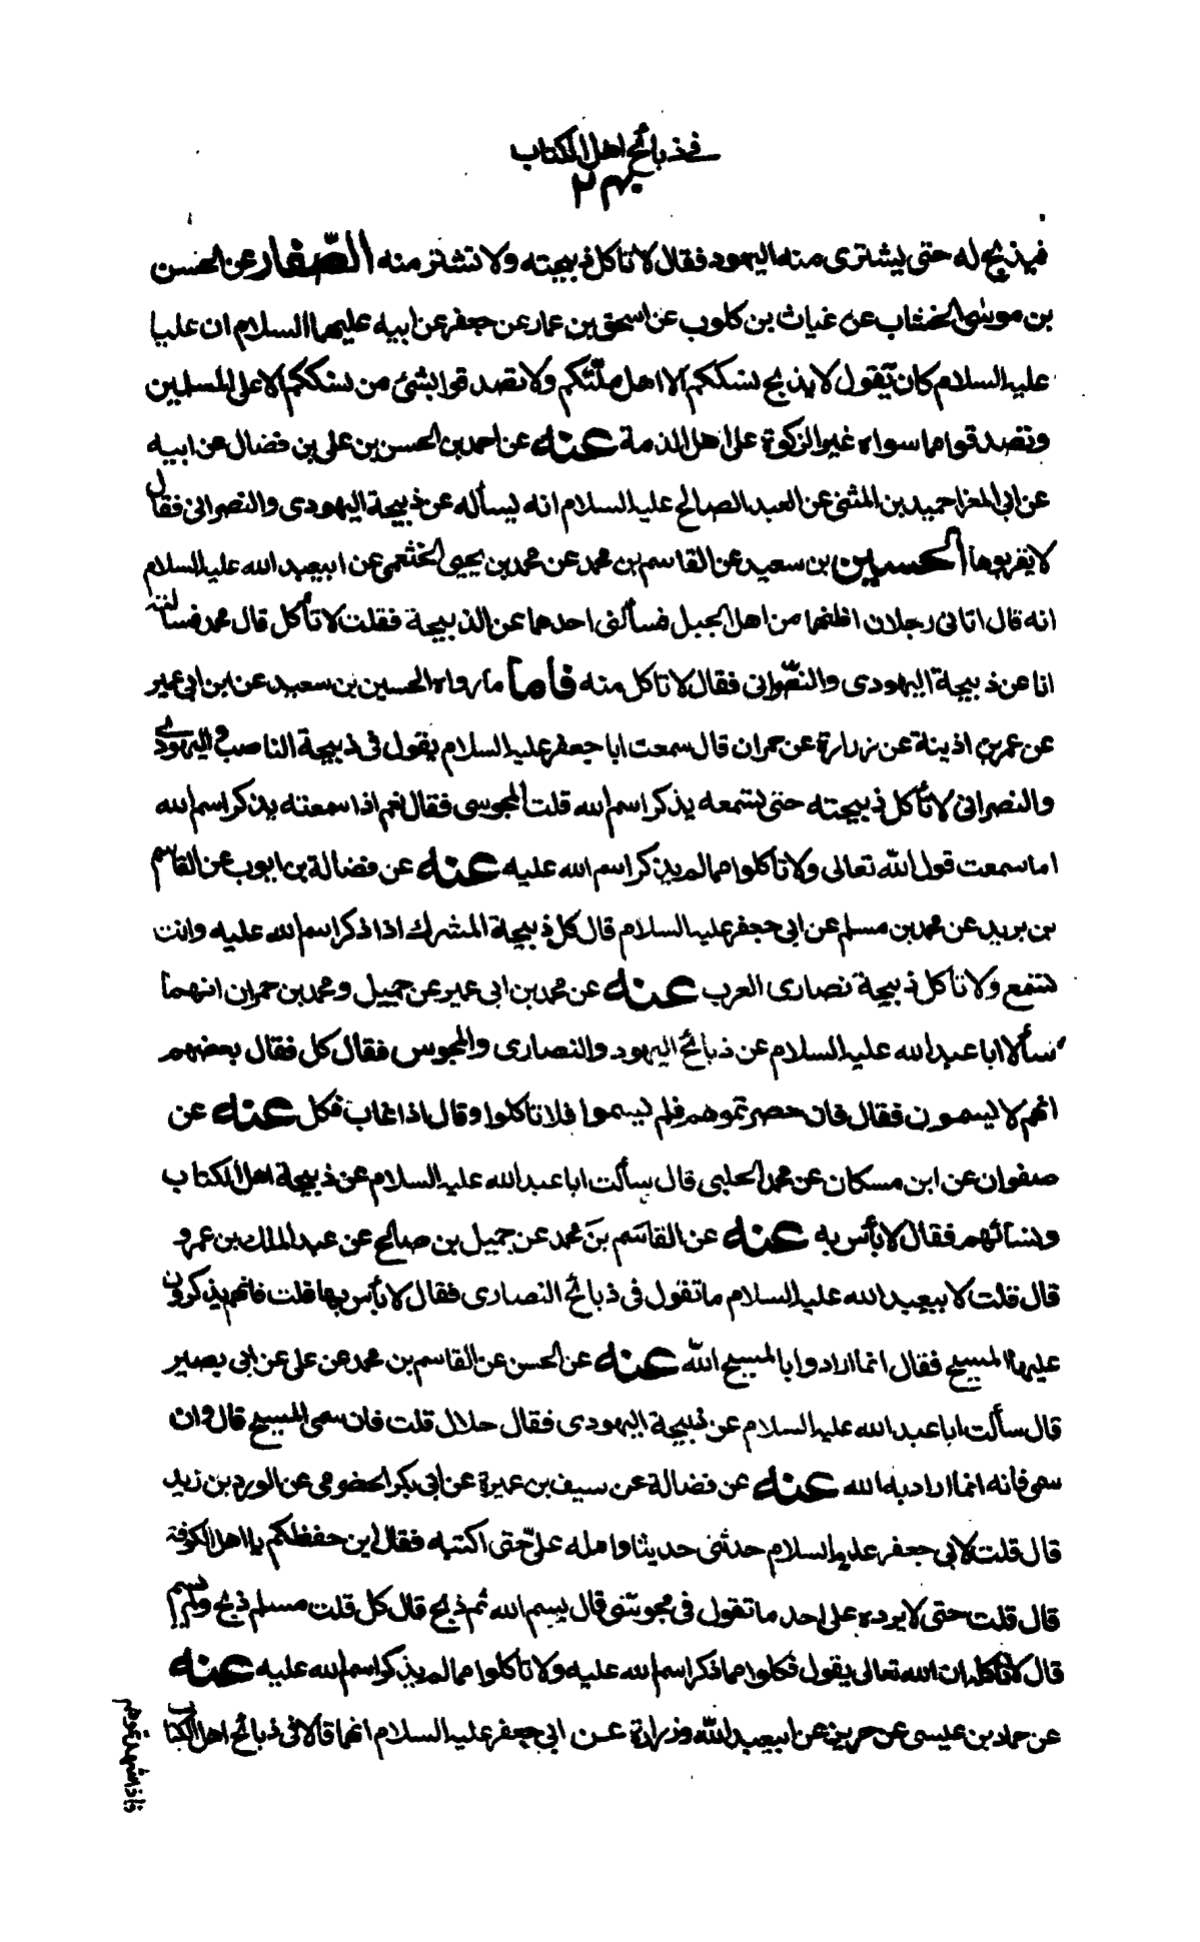 في ذبائح اهل الكتاب
فيذبح له حتى يشترى منه اليهود فقال لا تاكل ذبيحته ولا تشتر منه الصّفار عن الحسن
بن موسى الخشاب عن غياث بن كلوب عن اسحق بن عمار عن جعفر عن ابيه عليهما السلام ان عليا
عليه السلام كان يقول لا يذبح نسككم الا اهل ملّتكم ولا تصدقوا بشئ من نسككم الا على المسلمين
وتصدقوا مما سواه غير الزكوة على اهل الذمة عنه عن احمد بن الحسن بن على بن فضال عن ابيه
عن ابى المغرا حميد بن المثنى عن العبد الصالح عليه السلام انه يسأله عن ذبيحة اليهودى والنصرانى فقال
لا يقربوها الحسين بن سعيد عن القاسم بن محمد عن محمد بن يحيى الخثعمى عن ابيعبد الله عليه السلام
انه قال اتانى رجلان اظنهما من اهل الجبل فسألنى احدهما عن الذبيحة فقلت لا تأكل قال محمد فسالته
انا عن ذبيحة اليهودى والنصّرانى فقال لا تاكل منه فاما ما رواه الحسين بن سعيد عن بن ابى عمير
عن عمر بن اذينة عن زرارة عن حمران قال سمعت ابا جعفر عليه السلام يقول فى ذبيحة الناصب واليهودى
والنصرانى لا تأكل ذبيحته حتى تسمعه يذكر اسم الله قلت المجوسى فقال نعم اذا سمعته يذكر اسم الله
اما سمعت قول الله تعالى ولا تاكلوا مما لم يذكر اسم الله عليه عنه عن فضالة بن ايوب عن القاسم
بن بريد عن محمد بن مسلم عن ابى جعفر عليه السلام قال كل ذبيحة المشرك اذا ذكر اسم الله عليه وانت
تسمع ولا تاكل ذبيحة نصارى العرب عنه عن محمد بن ابى عمير عن جميل ومحمد بن حمران انهما
سألا ابا عبد الله عليه السلام عن ذبائح اليهود والنصارى والمجوس فقال كل فقال بعضهم
انهم لا يسمون فقال فان حضرتموهم فلم يسموا فلا تاكلوا وقال اذا غاب فكل عنه عن
صفوان عن ابن مسكان عن محمد الحلبى قال سألت ابا عبد الله عليه السلام عن ذبيحة اهل الكتاب
ونسائهم فقال لا بأس به عنه عن القاسم بن محمد عن جميل بن صالح عن عبد الملك بن عمرو
قال قلت لابيعبد الله عليه السلام ما تقول فى ذبائح النصارى فقال لا بأس بها قلت فانهم يذكرون
عليها المسيح فقال انما ارادوا بالمسيح الله عنه عن الحسن عن القاسم بن محمد عن على عن ابى بصير
قال سألت ابا عبد الله عليه السلام عن ذبيحة اليهودى فقال حلال قلت فان سمى المسيح قال وان
سمى فانه انما اراد به الله عنه عن فضالة عن سيف بن عميرة عن ابى بكر الحضرمى عن الورد بن زيد
قال قلت لابى جعفر عليه السلام حدثنى حديثا وامله علىّ حتى اكتبه فقال اين حفظكم يا اهل الكوفة
قال قلت حتى لا يرده على احد ما تقول فى مجوسّى قال بسم الله ثم ذبح قال كل قلت مسلم ذبح ولم يسم
قال لا تاكله ان الله تعالى يقول فكلوا مما ذكر اسم الله عليه ولا تاكلوا مما لم يذكر اسم الله عليه عنه
عن حماد بن عيسى عن حريز عن ابيعبد الله وزرارة عن ابى جعفر عليه السلام انهما قالا فى ذبائح اهل الكتاب
فاذا شهدتموهم